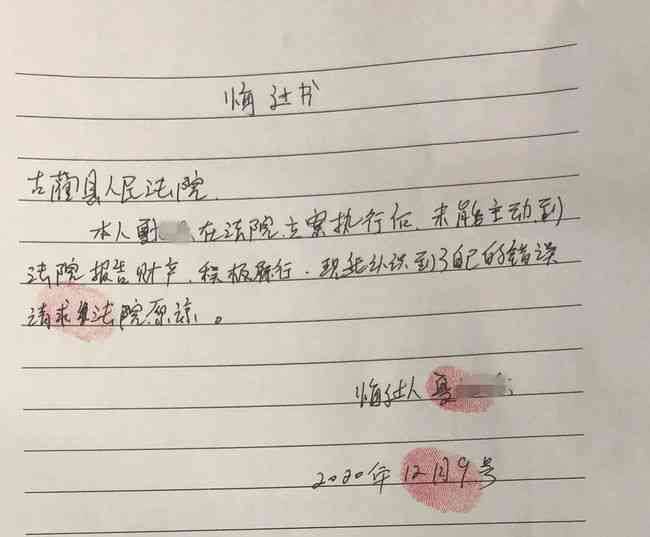 悔过书
古蔺县人民法院.
本人 在法院立案执行后,未能主动到
法院报告财产,积极履行.现我认识到了自己的错误
请求 法院原谅。
悔过人 夏
2020年12月9号